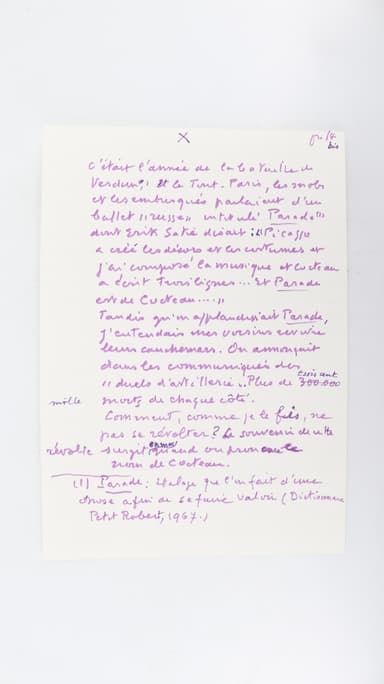 X
p. 14
bis
C'était l'année de la bataille de
Verdun, et le Tout-Paris, les snobs
et les embusqués parlaient d'un
ballet "russe" intitulé Parade"
dont Erik Satie disait : "Picasso
a créé les décors et les costumes et
j'ai composé la musique et Cocteau
a écrit trois lignes... Et Parade
est de Cocteau...."
Tandis qu'on applaudissait Parade,
j'entendais mes voisins revivre
leurs cauchemars. On annonçait
dans les communiqués des
"duels d'artillerie". Plus de 300.000
mille morts de chaque côté.
Comment, comme je le fis, ne
pas se révolter? Le souvenir de cette
révolte surgit quand on prononce le
nom de Cocteau.
(1) Parade : Etalage que l'on fait d'une
chose afin de se faire valoir (Dictionnaire
Petit Robert, 1967.)